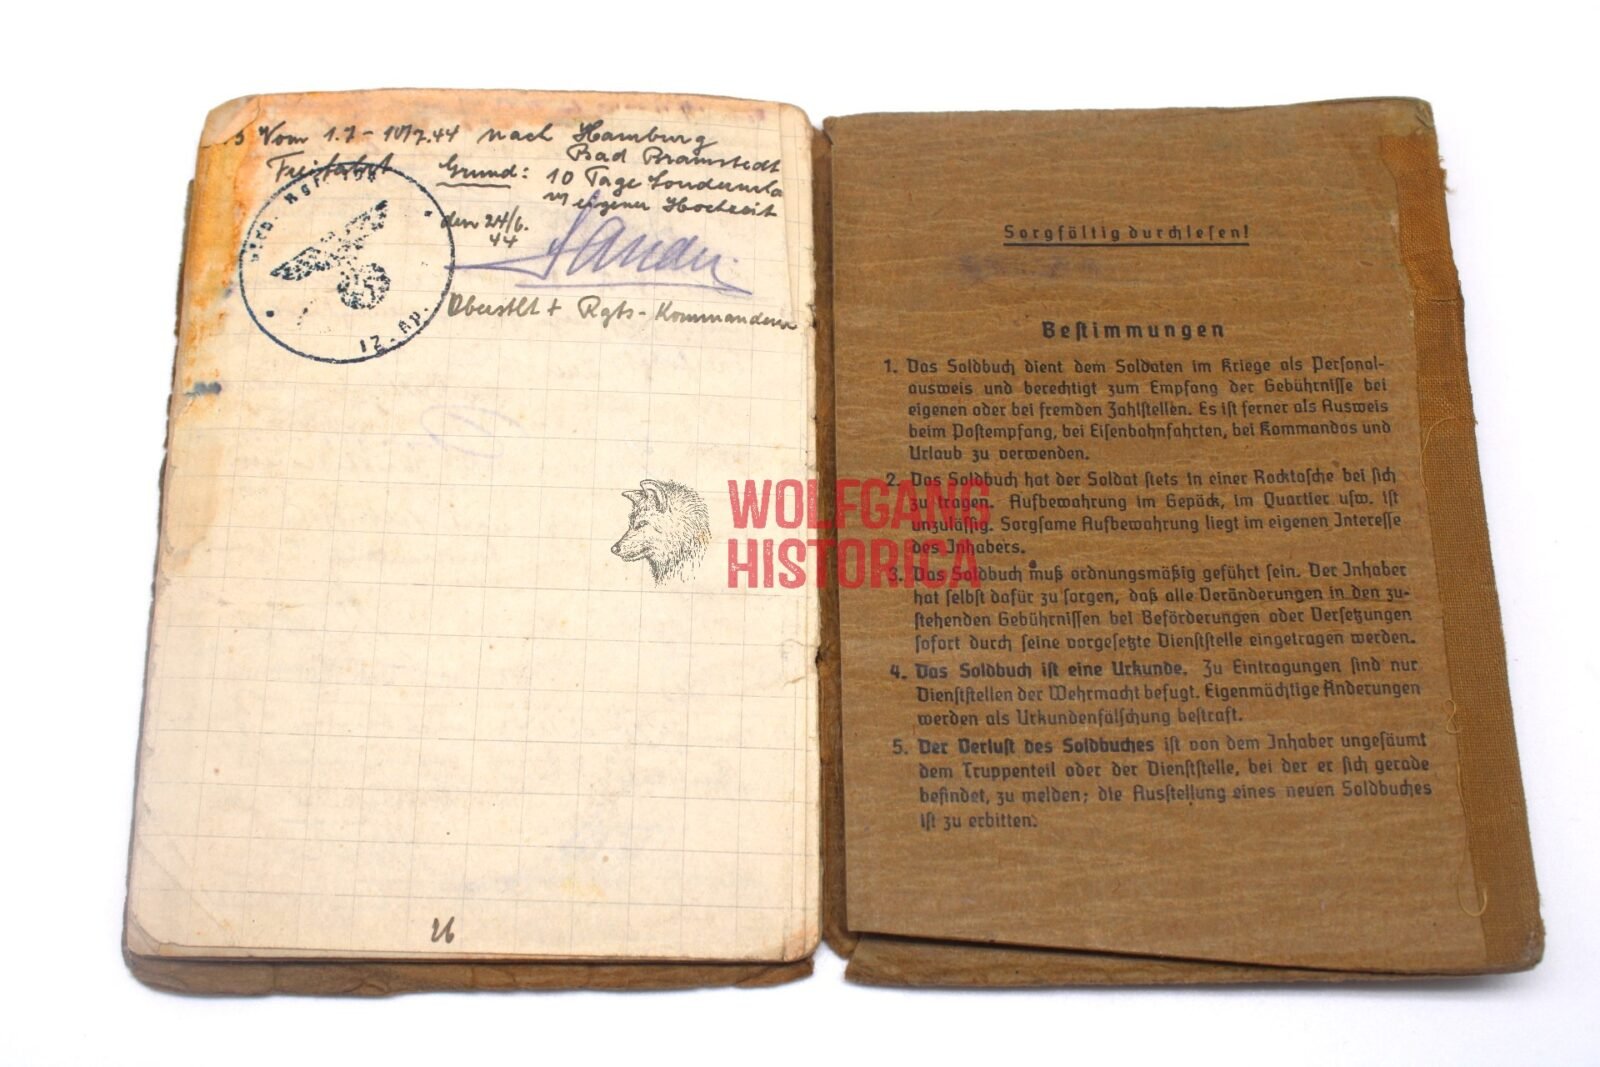 3 Vom 1.7 – 10/7.44 nach Hamburg
Bad Bramstedt
Freifahrt Grund: 10 Tage
eigener Hochzeit
den 24/6.
44
Oberstlt + Rgts-Kommandeur
12. Kp.
26
Sorgfältig durchlesen!
Bestimmungen
1. Das Soldbuch dient dem Soldaten im Kriege als Personal-
ausweis und berechtigt zum Empfang der Gebührnisse bei
eigenen oder bei fremden Zahlstellen. Es ist ferner als Ausweis
beim Postempfang, bei Eisenbahnfahrten, bei Kommandos und
Urlaub zu verwenden.
2. Das Soldbuch hat der Soldat stets in einer Rocktasche bei sich
zu tragen. Aufbewahrung im Gepäck, im Quartier usw. ist
unzulässig. Sorgsame Aufbewahrung liegt im eigenen Interesse
des Inhabers.
3. Das Soldbuch muß ordnungsmäßig geführt sein. Der Inhaber
hat selbst dafür zu sorgen, daß alle Veränderungen in den zu-
stehenden Gebührnissen bei Beförderungen oder Versetzungen
sofort durch seine vorgesetzte Dienststelle eingetragen werden.
4. Das Soldbuch ist eine Urkunde. Zu Eintragungen sind nur
Dienststellen der Wehrmacht befugt. Eigenmächtige Änderungen
werden als Urkundenfälschung bestraft.
5. Der Verlust des Soldbuches ist von dem Inhaber ungesäumt
dem Truppenteil oder der Dienststelle, bei der er sich gerade
befindet, zu melden; die Ausstellung eines neuen Soldbuches
ist zu erbitten.
WOLFGANG
HISTORICA